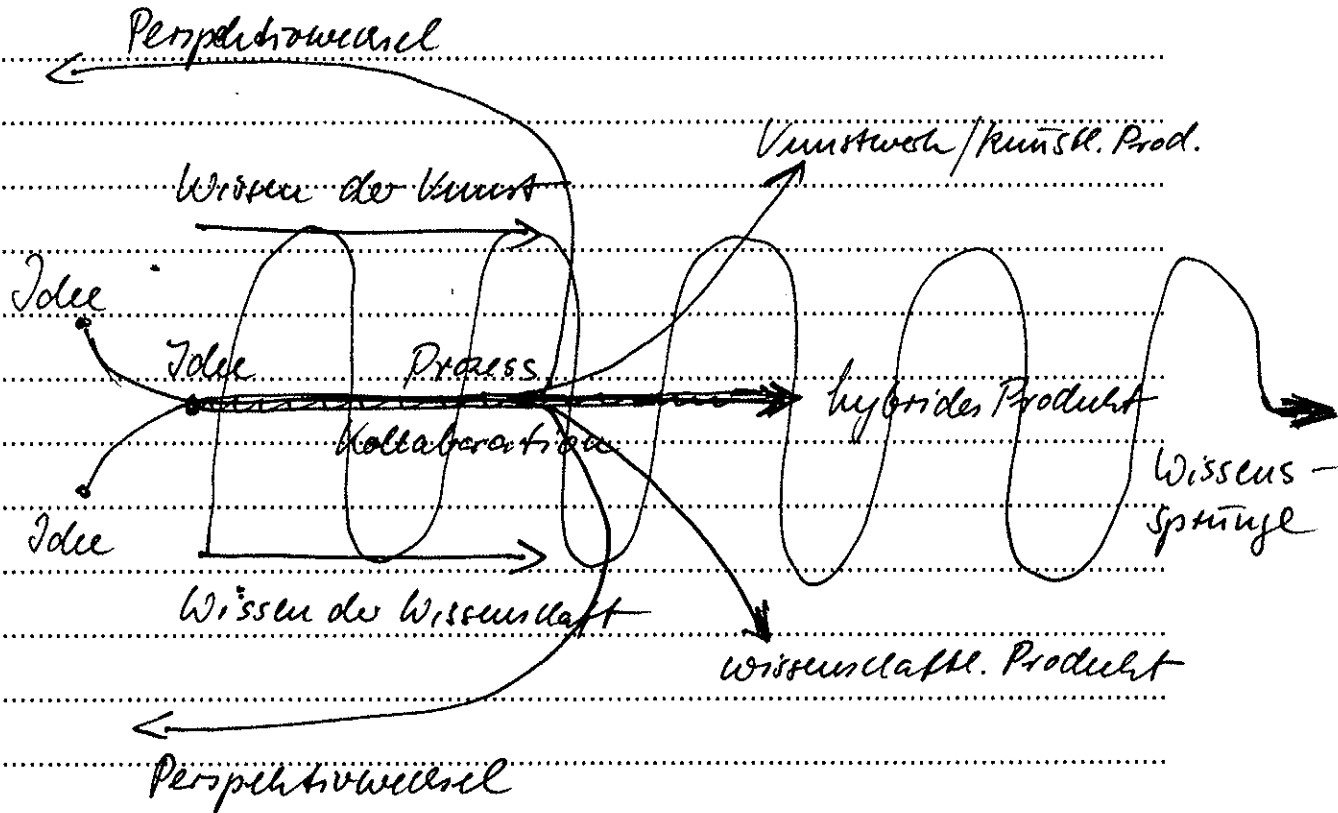 Perspektivwechsel
Kunstwerk/künstl. Prod.
Wissen der Kunst
Idee
Idee
Prozess
hybrides Produkt
Kollaboration
Wissens-
sprünge
Idee
Wissen der Wissenschaft
wissenschaftl. Produkt
Perspektivwechsel